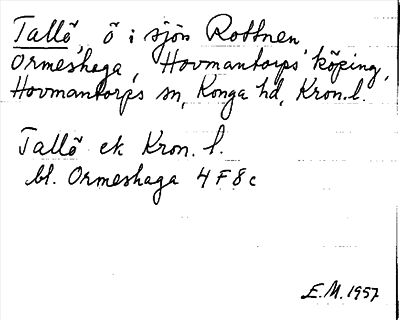 Tallö, ö i sjön Rottnen,
Ormeshaga, Hovmantorps köping,
Hovmantorps sn, Konga hd, Kron.l.
Tallö ek Kron. l.
bl. Ormeshaga 4 F 8 c
E.M. 1957